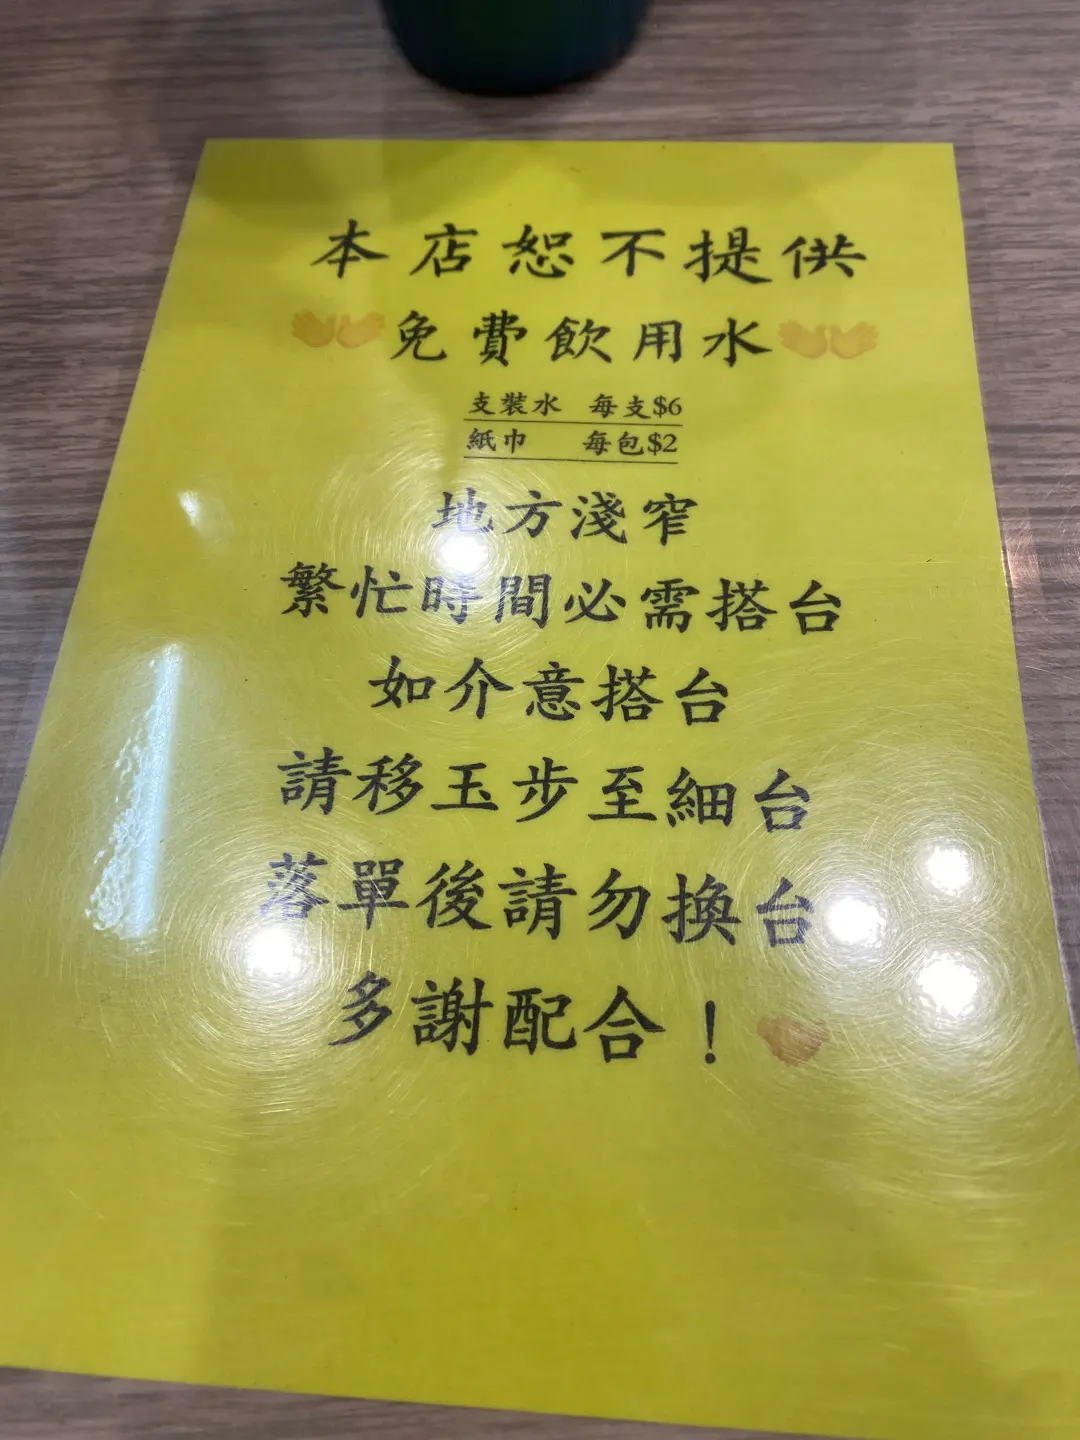 本店恕不提供
免費飲用水
支裝水 每支$6
紙巾 每包$2
地方淺窄
繁忙時間必需搭台
如介意搭台
請移玉步至細台
落單後請勿換台
多謝配合！